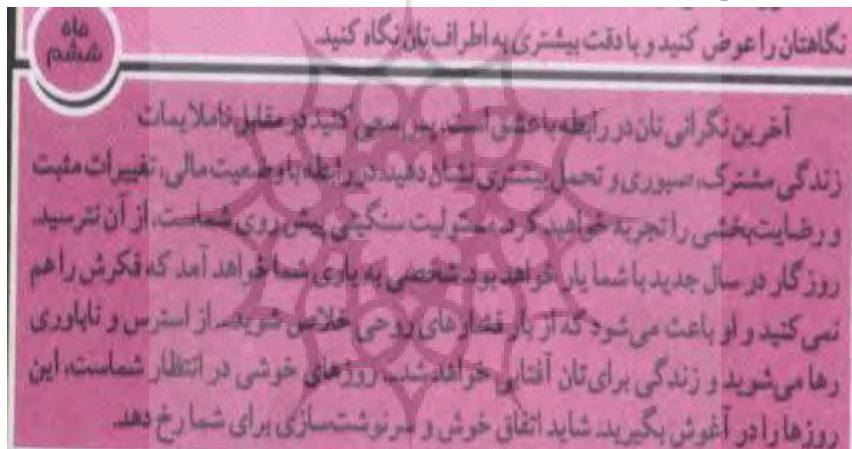 نگاهتان را عوض کنید و با دقت بیشتری به اطراف‌تان نگاه کنید.
ماه
ششم
آخرین نگرانی‌تان در رابطه با عشق است. پس سعی کنید در مقابل ناملایمات
زندگی مشترک، صبوری و تحمل بیشتری نشان دهید. در رابطه با وضعیت مالی، تغییرات مثبت
و رضایت‌بخشی را تجربه خواهید کرد. مسئولیت سنگینی پیش روی شماست، از آن نترسید.
روزگار در سال جدید با شما یار خواهد بود. شخصی به یاری شما خواهد آمد که فکرش را هم
نمی‌کنید و او باعث می‌شود که از بار فشارهای روحی خلاص شوید. از استرس و ناباوری
رها می‌شوید و زندگی برای‌تان آفتابی خواهد شد. روزهای خوشی در انتظار شماست، این
روزها را در آغوش بگیرید. شاید اتفاق خوش و سرنوشت‌سازی برای شما رخ دهد.